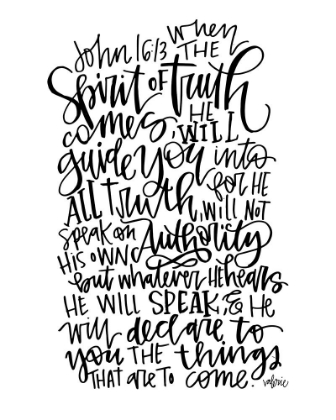 John 16:13 when THE
Spirit OF truth
comes, HE WILL
guide you into
ALL Truth, for HE
WILL NOT
speak on Authority
HIS OWN
but whatever HE hears
HE WILL SPEAK, & HE
will declare to
you THE things
THAT are TO come.
valerie